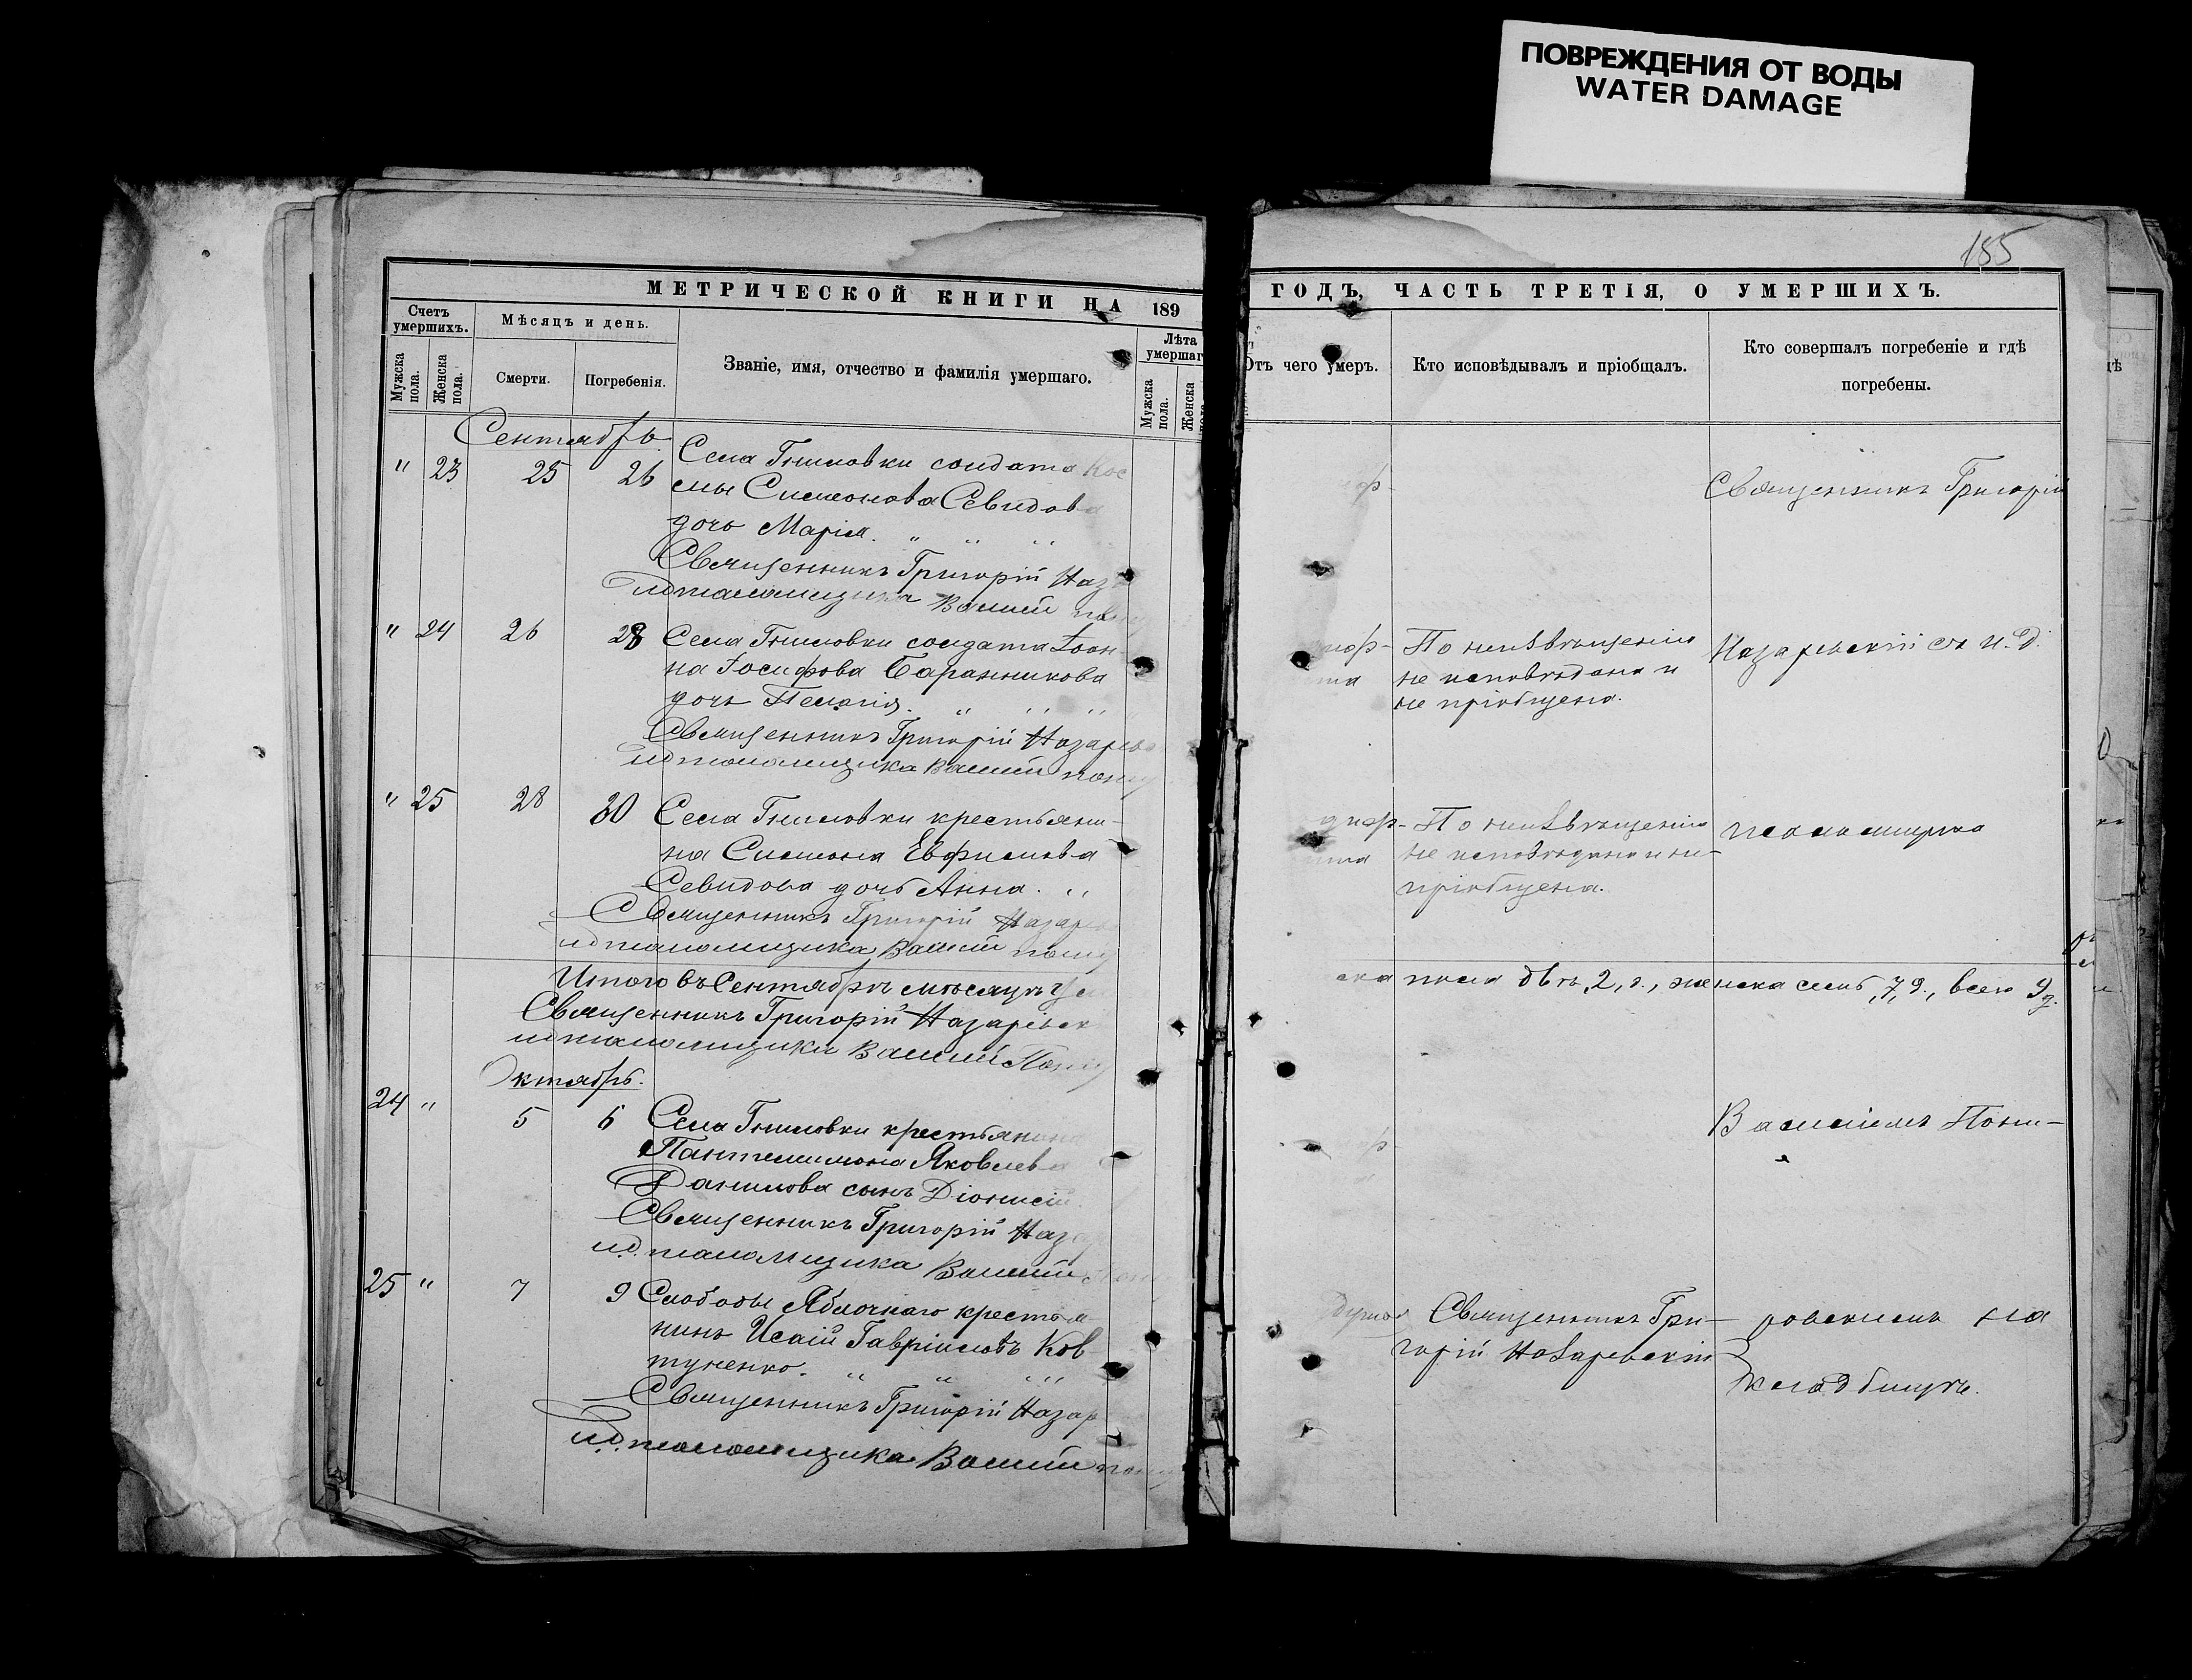 ПОВРЕЖДЕНИЯ ОТ ВОДЫ
WATER DAMAGE
155
МЕТРИЧЕСКОЙ КНИГИ НА 189
ГОДЪ, ЧАСТЬ ТРЕТІЯ, О УМЕРШИХЪ.
Счетъ умершихъ.
Мужска пола.
Женска пола.
Мѣсяцъ и день.
Смерти.
Погребенія.
Званіе, имя, отчество и фамилія умершаго.
Лѣта
умершаг
Мужска пола.
Женска
Отъ чего умеръ.
Кто исповѣдывалъ и пріобщалъ.
Кто совершалъ погребеніе и гдѣ
погребены.
Сентябрь
" 23 25 26 Села Гниловки солдата Кос
мы Симеонова Севидова
дочь Марія. " " "
Священникъ Григорій Наз
и д псаломщика Василій
Священникъ Григорій
" 24 26 28 Села Гниловки солдата Іоан
на Іосифова Баранникова
дочь Пелагія. " " "
Священникъ Григорій Назарев
и д псаломщика Василій
По неизвѣщенію
не исповѣдана и
не пріобщена.
Назаревскій съ и. д.
" 25 28 30 Села Гниловки крестьяни-
на Симеона Евфимова
Севидова дочь Анна. "
Священникъ Григорій Назарев
и д псаломщика Василій
По неизвѣщенію
не исповѣдана и не-
пріобщена.
псаломщика
Итого въ Сентябрѣ мѣсяцѣ
ска пола двѣ, 2, д., женска семь, 7, д., всего 9 д.
Священникъ Григорій Назаревск
и д псаломщика Василій Пони
Октябрь.
24 " 5 6 Села Гниловки крестьянина
Пантелимона Яковлева
Данилова сынъ Діонисій
Священникъ Григорій Наза
и.д. псаломщика Василій
Василіемъ Пони-
25 " 7 9 Слободы Яблочнаго крестья
нинъ Исаій Гавріиловъ Ков
туненко. " " "
Священникъ Григорій Назар
и.д. псаломщика Василій
Священникъ Гри-
горій Назаревскій
ровскимъ на
кладбищѣ.